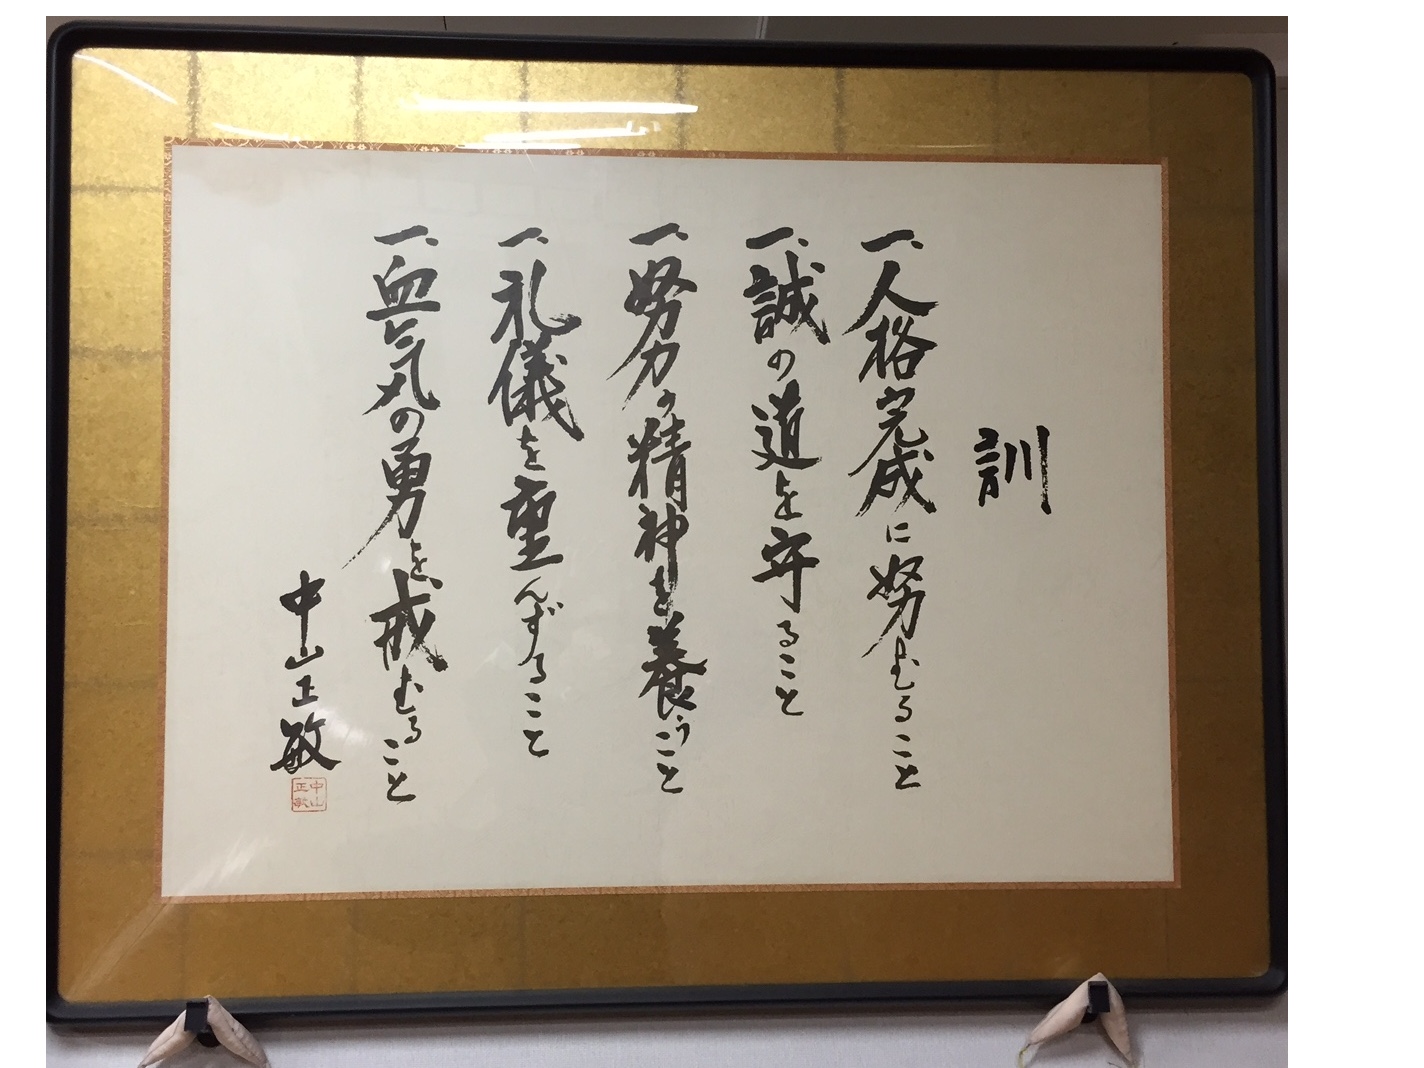 訓
一、人格完成に努むること
一、誠の道を守ること
一、努力の精神を養うこと
一、礼儀を重んずること
一、血気の勇を戒むること
中山正敏
中山
正敏